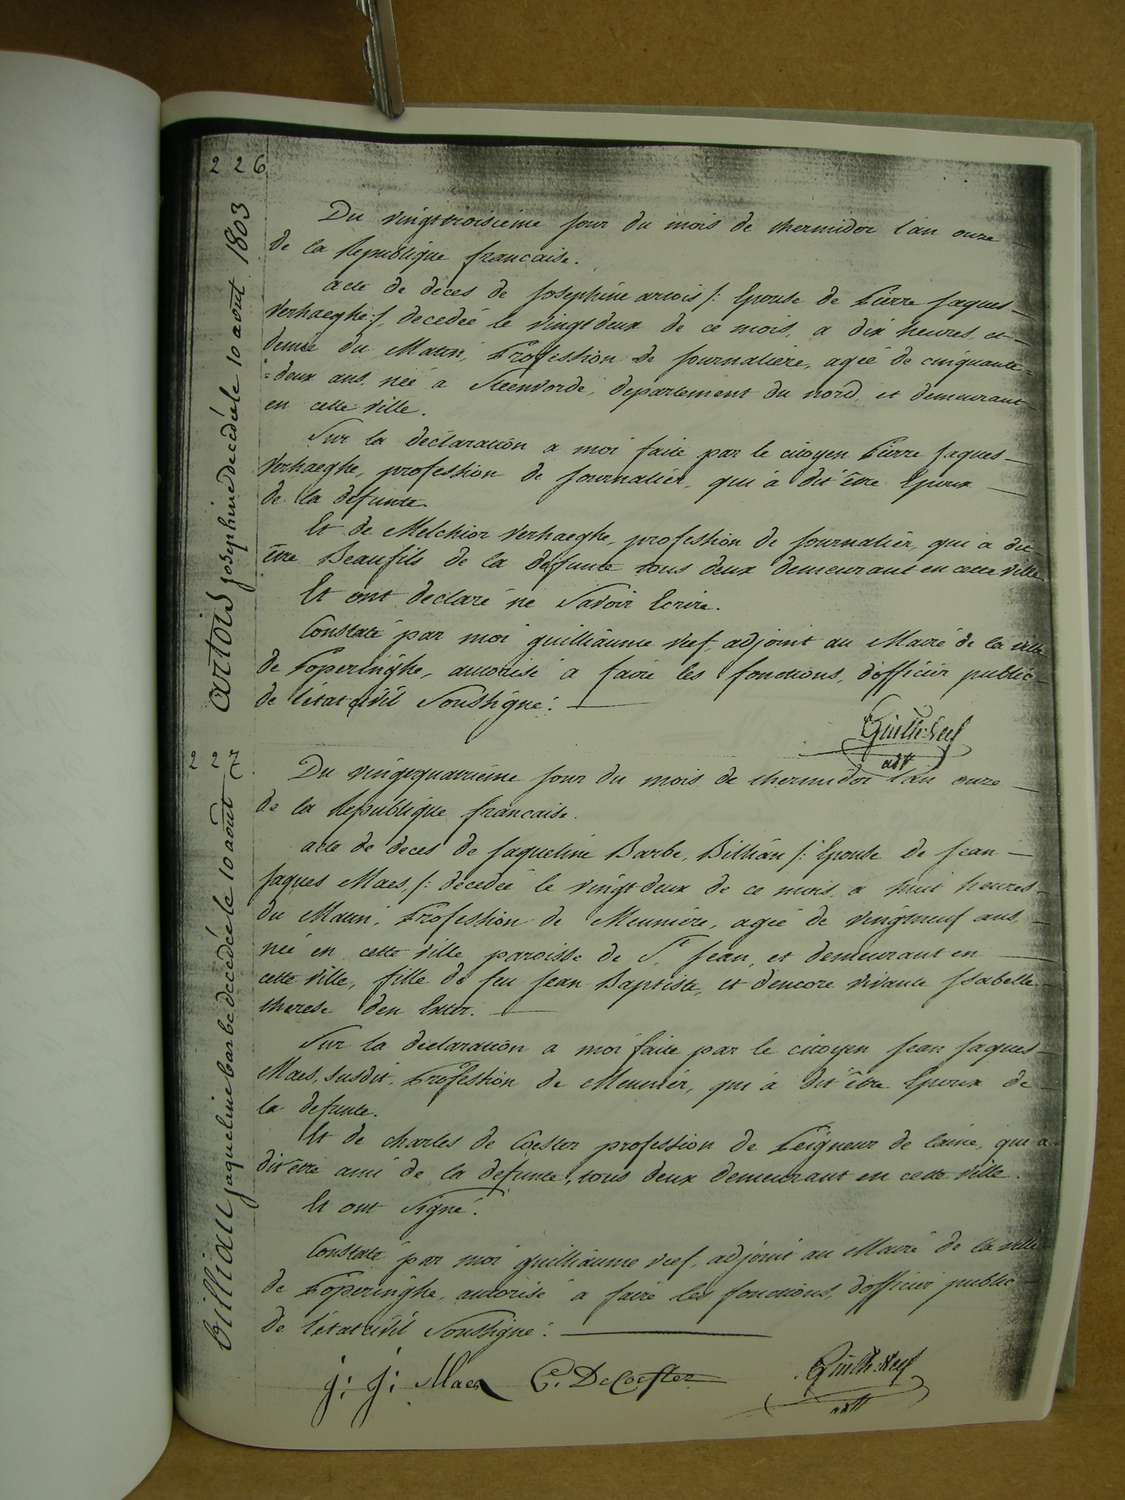 226
artois josephine decédé le 10 aout 1803
Du vingttroisieme jour du mois de thermidor l'an onze
de la Republique francaise.
acte de déces de Josephine artois /: Epouse de Pierre Jaques
Verhaeghe :/, decedeé le vingtdeux de ce mois, a dix heures et
demie du Matin, Profession de Journaliere, ageé de cinquante
=deux ans, neé a Steenvorde, departement du nord, et demeurant
en cette ville.
Sur la déclaration a moi faite par le citoyen Pierre Jaques
Verhaeghe, profession de Journalier, qui à dit être Epoux
de la defunte.
Et de Melchior Verhaeghe, profession de Journalier, qui a dit
être Beaufils de la defunte tous deux demeurant en cette ville
Et ont declaré ne Savoir Ecrire.
Constaté par moi guilliaume neef, adjoint au Maire de la ville
de Poperinghe, autorisé à faire les fonctions, d'officier public
de l'état civil Soussigné :
Guilli: Neef
adt
227
billiau jaqueline barbe decédée le 10 août
Du vingtquatrieme jour du mois de thermidor l'an onze
de la Republique francaise.
acte de deces de Jaqueline Barbe, Billiau /: Epouse de Jean
Jaques Maes, /: decedeé le vingtdeux de ce mois, a huit heures
du Matin, Profession de Meuniere, ageé de vingtneuf ans,
neé en cette ville paroisse de St Jean, et demeurant en
cette ville, fille de feu Jean Baptiste, et d'encore vivante Isabelle
therese den
Sur la declaration a moi faite par le citoyen Jean Jaques
Maes, susdit, Profession de Meunier, qui à dit être Epoux de
la defunte.
Et de charles de Coester profession de Peigneur de laine, qui a
dit être ami de la defunte, tous deux demeurant en cette ville.
Et ont Signé.
Constaté par moi guilliaume neef, adjoint au Maire de la ville
de Poperinghe, autorisé à faire les fonctions, d'officier public
de l'état civil Soussigné :
J: J: Maes C. DeCoester Guilli: Neef
adt